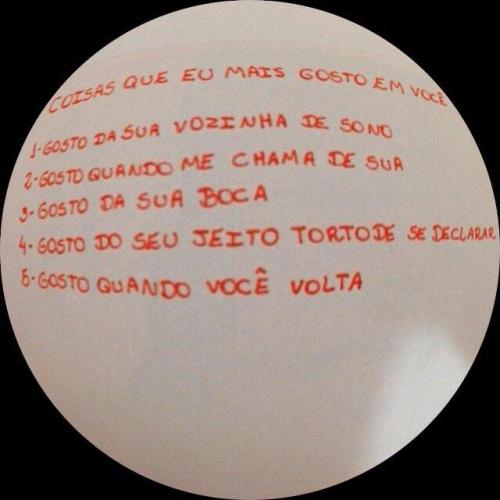 COISAS QUE EU MAIS GOSTO EM VOCÊ
1-GOSTO DA SUA VOZINHA DE SONO
2-GOSTO QUANDO ME CHAMA DE SUA
3-GOSTO DA SUA BOCA
4-GOSTO DO SEU JEITO TORTO DE SE DECLARAR
5-GOSTO QUANDO VOCÊ VOLTA